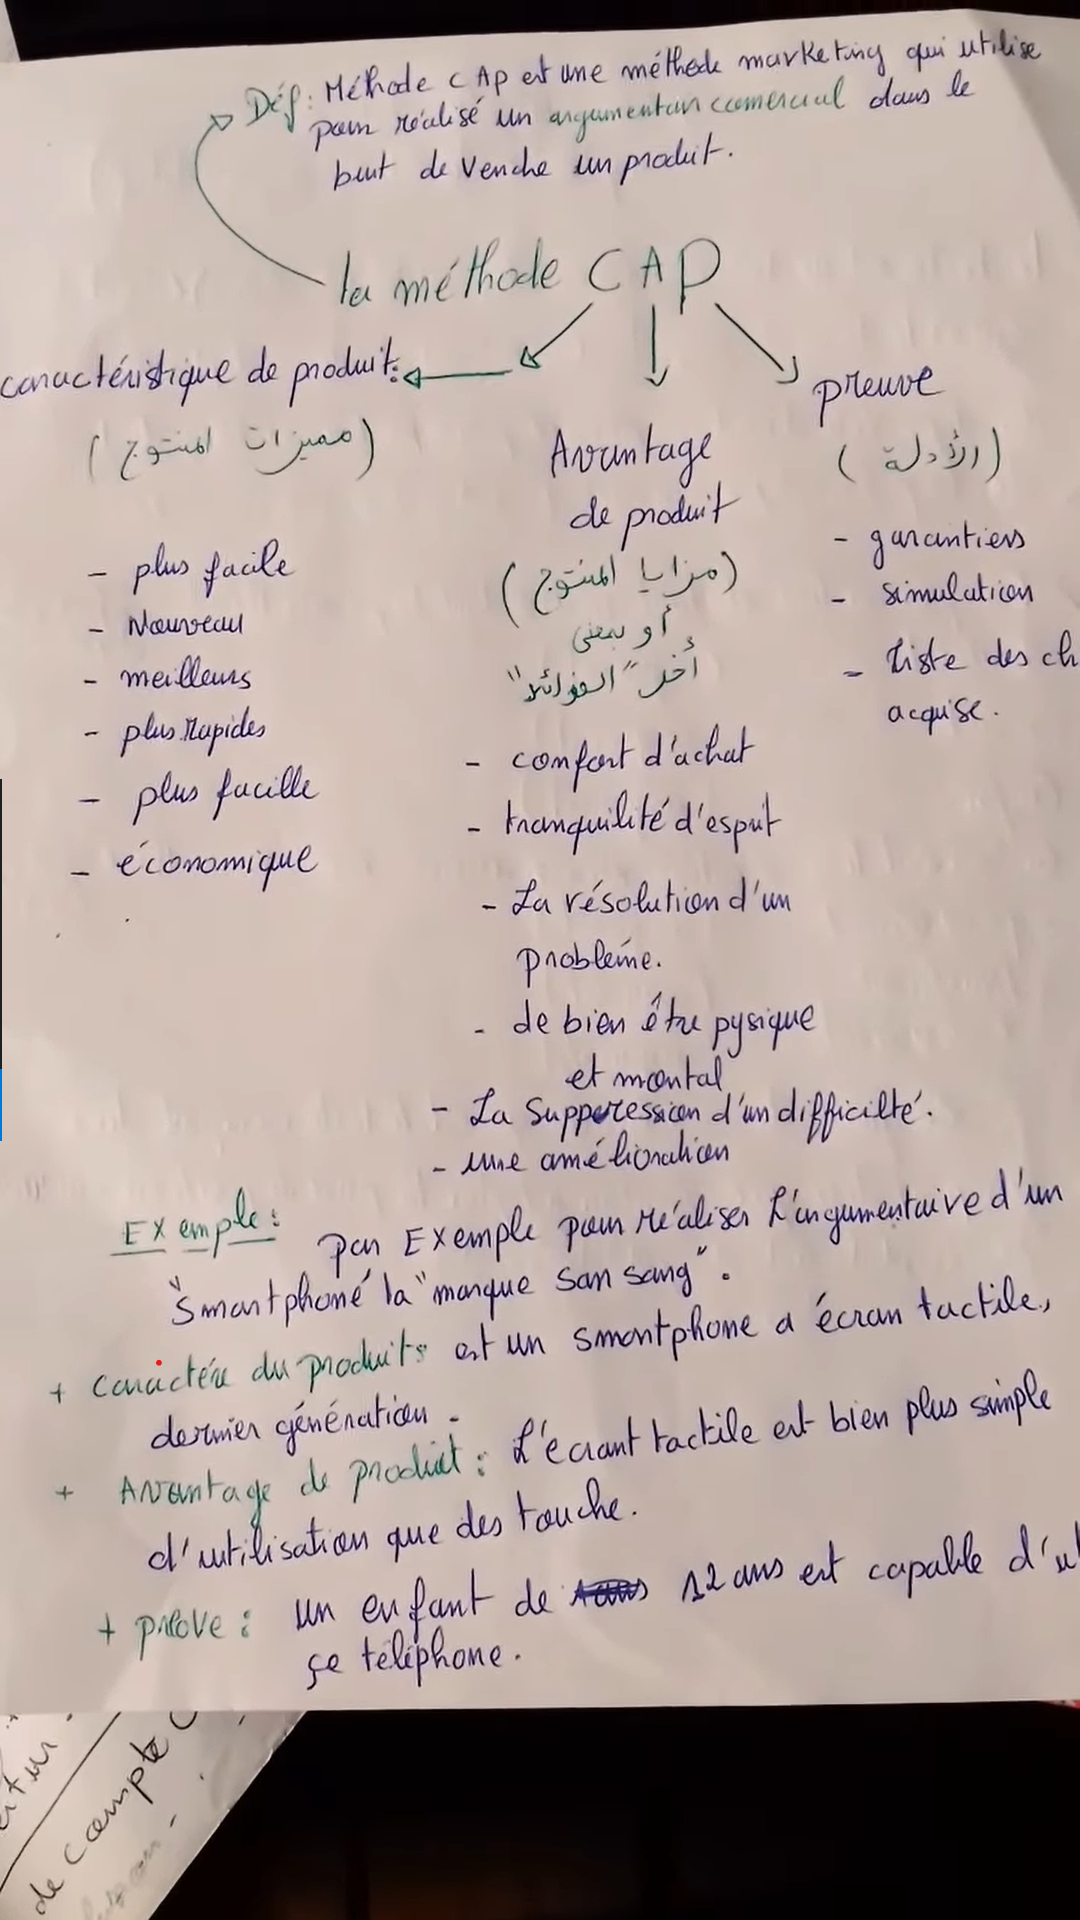 Déf: Méthode CAp est une méthode marketing qui utilise
pour réalisé un argumentair comercial dans le
but de Vendre un produit.
la méthode CAP
caractéristique de produit:
(مميزات المنتوج)
- plus facile
- Nouveau
- meilleurs
- plus rapides
- plus facille
- économique
Avantage
de produit
(مزايا المنتوج)
أو بمعنى
أخر "الفوائد"
- confort d'achat
- tranquilité d'esprit
- La résolution d'un
probléme.
- de bien être pysique
et mental
- La Supperession d'un difficilté.
- une amélioration
preuve
(الأدلة)
- garantiers
- simulation
- Liste des ch
acquise.
EXemple: par EXemple pour réaliser L'argumentaire d'un
"Smartphone" la "marque San sang".
+ caractére du produit: est un smartphone a écran tactile,
dernier génération.
+ Avantage de produit: L'écrant tactile est bien plus simple
d'utilisation que des touche.
+ prove: un enfant de 12 ans est capable d'ut
çe téléphone.
de compte